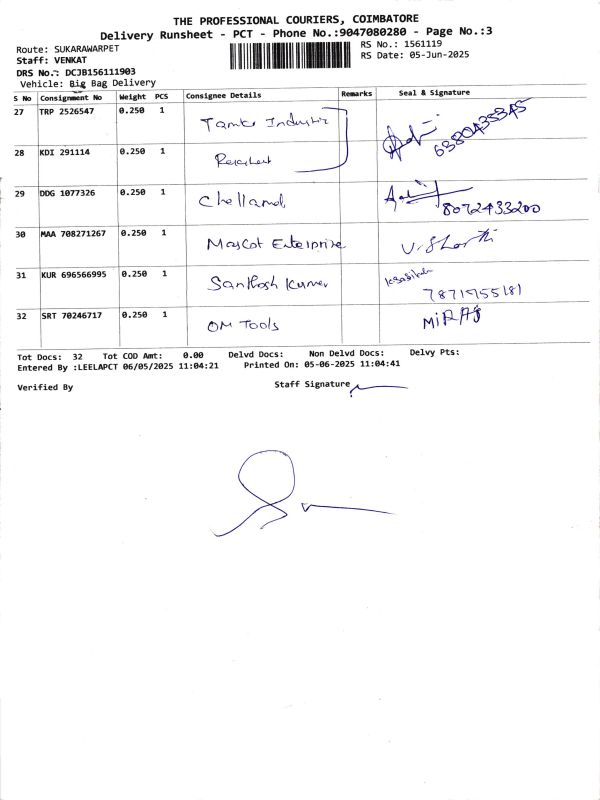 THE PROFESSIONAL COURIERS, COIMBATORE
Delivery Runsheet - PCT - Phone No.:9047080280 - Page No.:3
Route: SUKARAWARPET
RS No.: 1561119
Staff: VENKAT
RS Date: 05-Jun-2025
DRS No.: DCJB156111903
Vehicle: Big Bag Delivery
S No Consignment No Weight PCS Consignee Details Remarks Seal & Signature
27 TRP 2526547 0.250 1 Industris 6380435345
28 KDI 291114 0.250 1
29 DDG 1077326 0.250 1 Chellamal 8072433200
30 MAA 708271267 0.250 1 Mascot Enterprise V. Sharthi
31 KUR 696566995 0.250 1 Santhosh Kumar 7871955181
32 SRT 70246717 0.250 1 OM TOOLS MIRAJ
Tot Docs: 32 Tot COD Amt: 0.00 Delvd Docs: Non Delvd Docs: Delvy Pts:
Entered By :LEELAPCT 06/05/2025 11:04:21 Printed On: 05-06-2025 11:04:41
Verified By Staff Signature